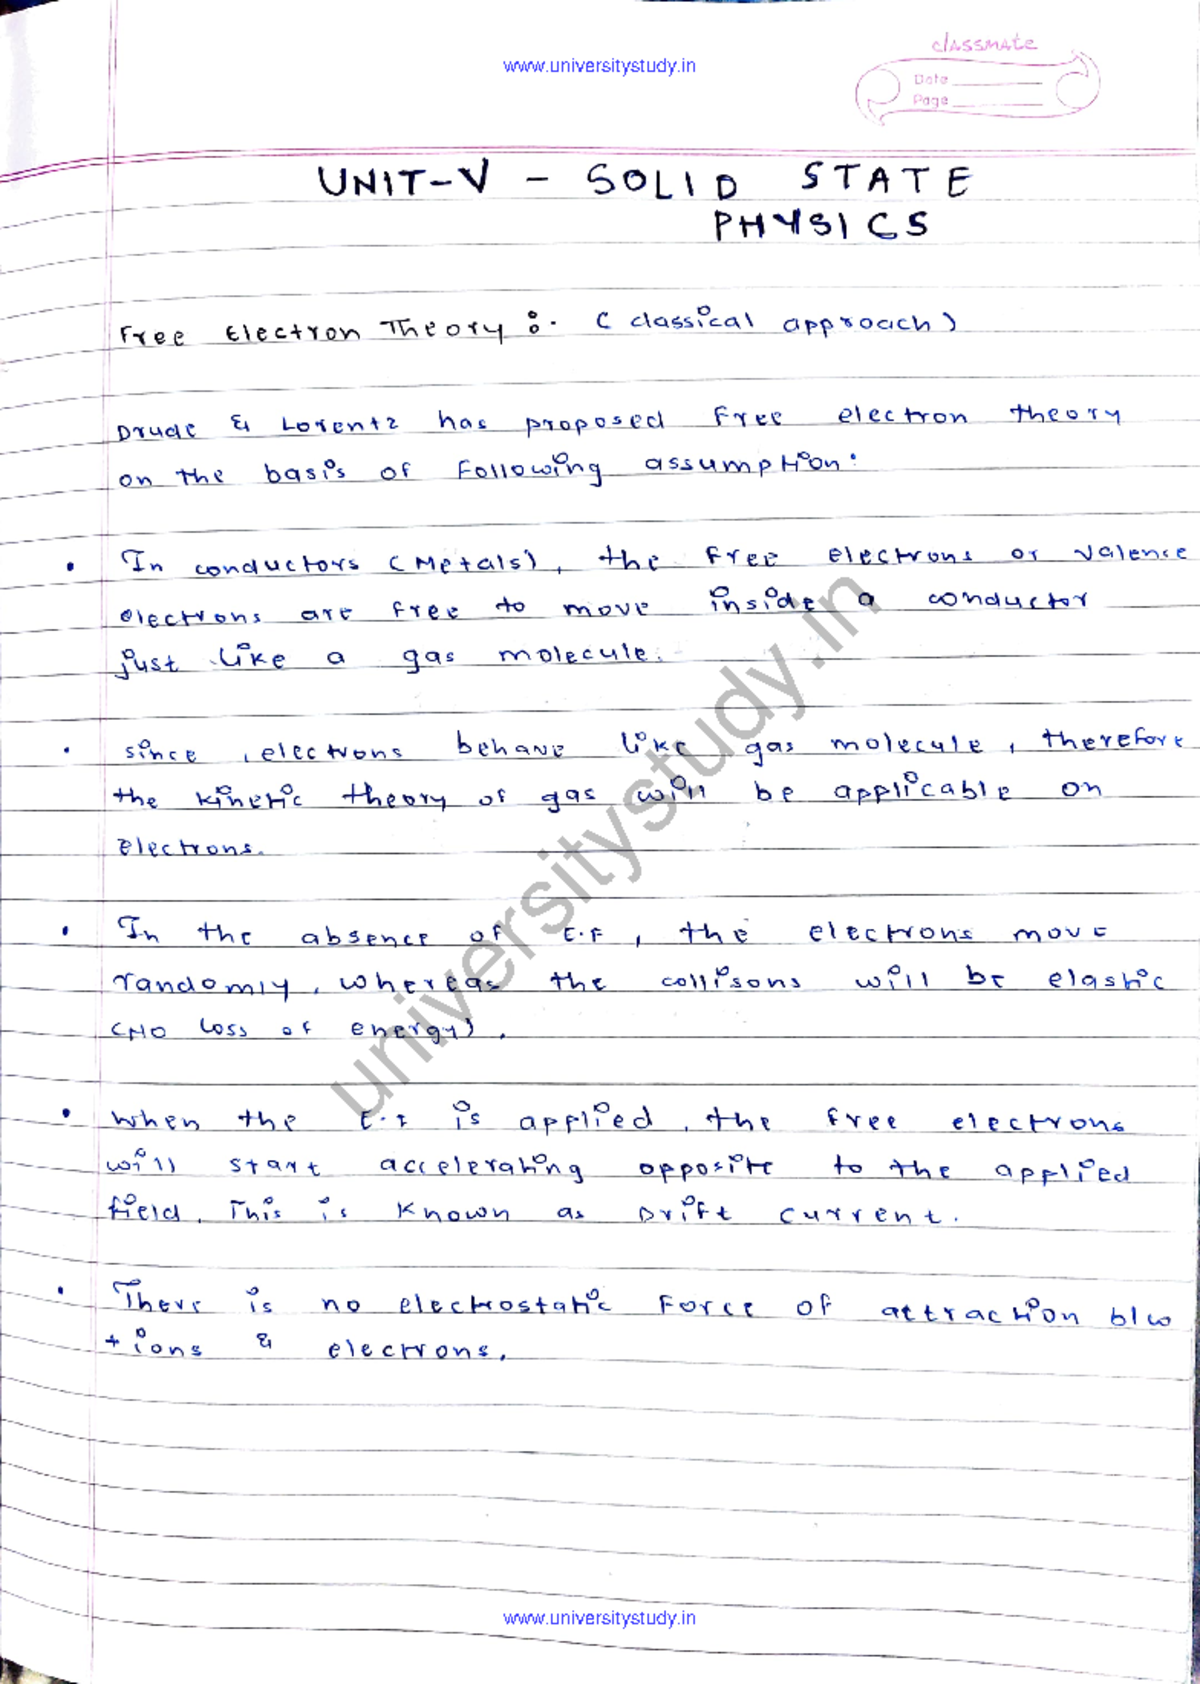 www.universitystudy.in
classmate
Date
Page
UNIT-V - SOLID STATE
PHYSICS
Free Electron Theory :- (classical approach)
Drude & Lorentz has proposed free electron theory
on the basis of following assumption:
• In conductors (Metals), the free electrons or valence
electrons are free to move inside a conductor
just like a gas molecule.
• since, electrons behave like gas molecule, therefore
the kinetic theory of gas will be applicable on
electrons.
• In the absence of E.F, the electrons move
randomly, whereas the collisons will be elastic
(NO loss of energy).
• when the E.F is applied, the free electrons
will start accelerating opposite to the applied
field. This is known as Drift current.
• There is no electrostatic force of attraction b/w
+ ions & electrons.
universitystudy.in
www.universitystudy.in